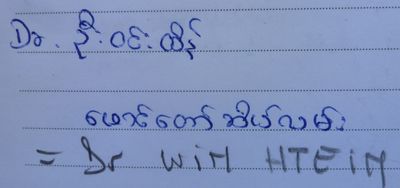 Dr. ဦးဝင်းထိန်
မောင်တော်အိမ်လမ်း
= Dr WIN HTEIN